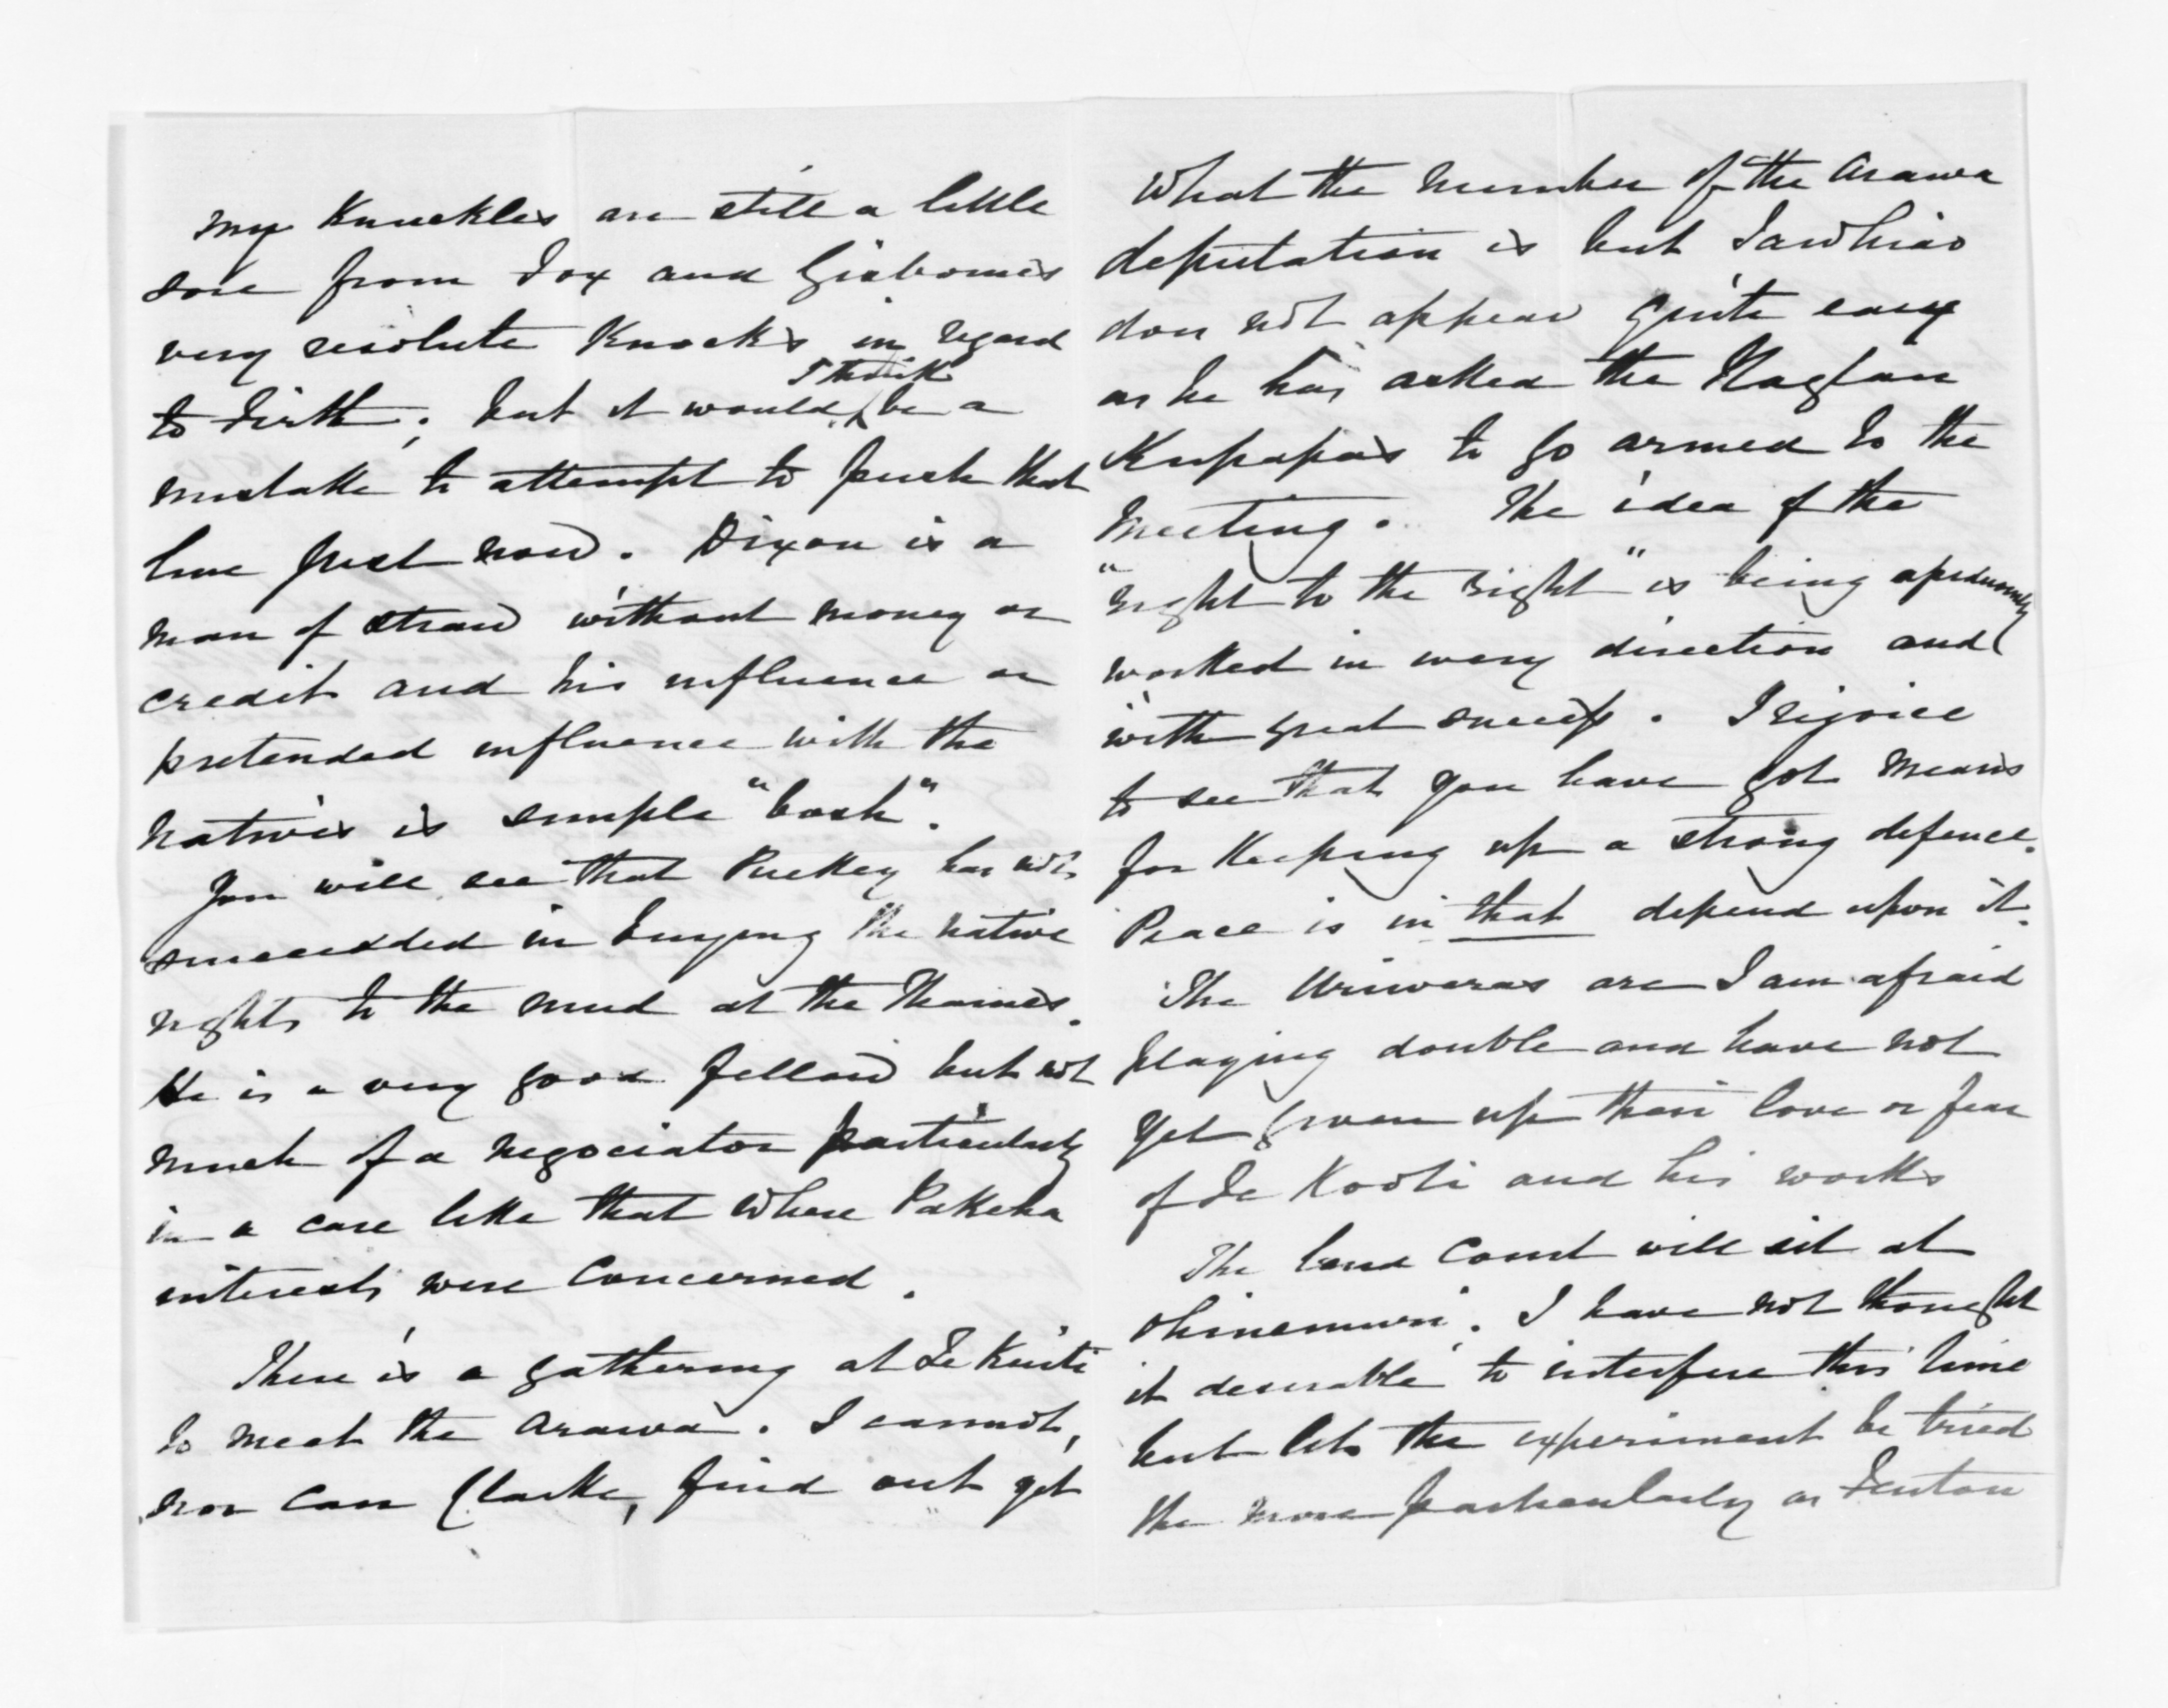 My Knuckles are still a little
sore from Fox and Gisborne's
very resolute Knocks in regard
to Firth; but it would I think be a
mistake to attempt to push that
line just now. Dixon is a
man of straw without money or
credit and his influence or
pretended influence with the
natives is simple "bosh".
You will see that Puckey has not
succeeded in buying the native
rights to the mud at the Thames.
He is a very good fellow but not
much of a negociator particularly
in a case like that where Pakeha
interests were concerned.
There is a gathering at Te Kuiti
to meet the Arawa. I cannot,
nor can Clarke, find out yet
What the number of the Arawa
deputation is but Tawhiao
does not appear quite easy
as he has asked the Raglan
Kupapas to go armed to the
meeting. The idea of the
"right to the right" is being
worked in every direction and
with great success. I rejoice
to see that you have got means
for Keeping up a strong defence.
Peace is in that depend upon it.
The Uriweras are I am afraid
playing double and have not
yet given up their love or fear
of Te Kooti and his works
The land Court will sit at
Ohinemuri. I have not thought
it desirable to interfere this time
but let the experiment be tried
the more particularly as Fenton